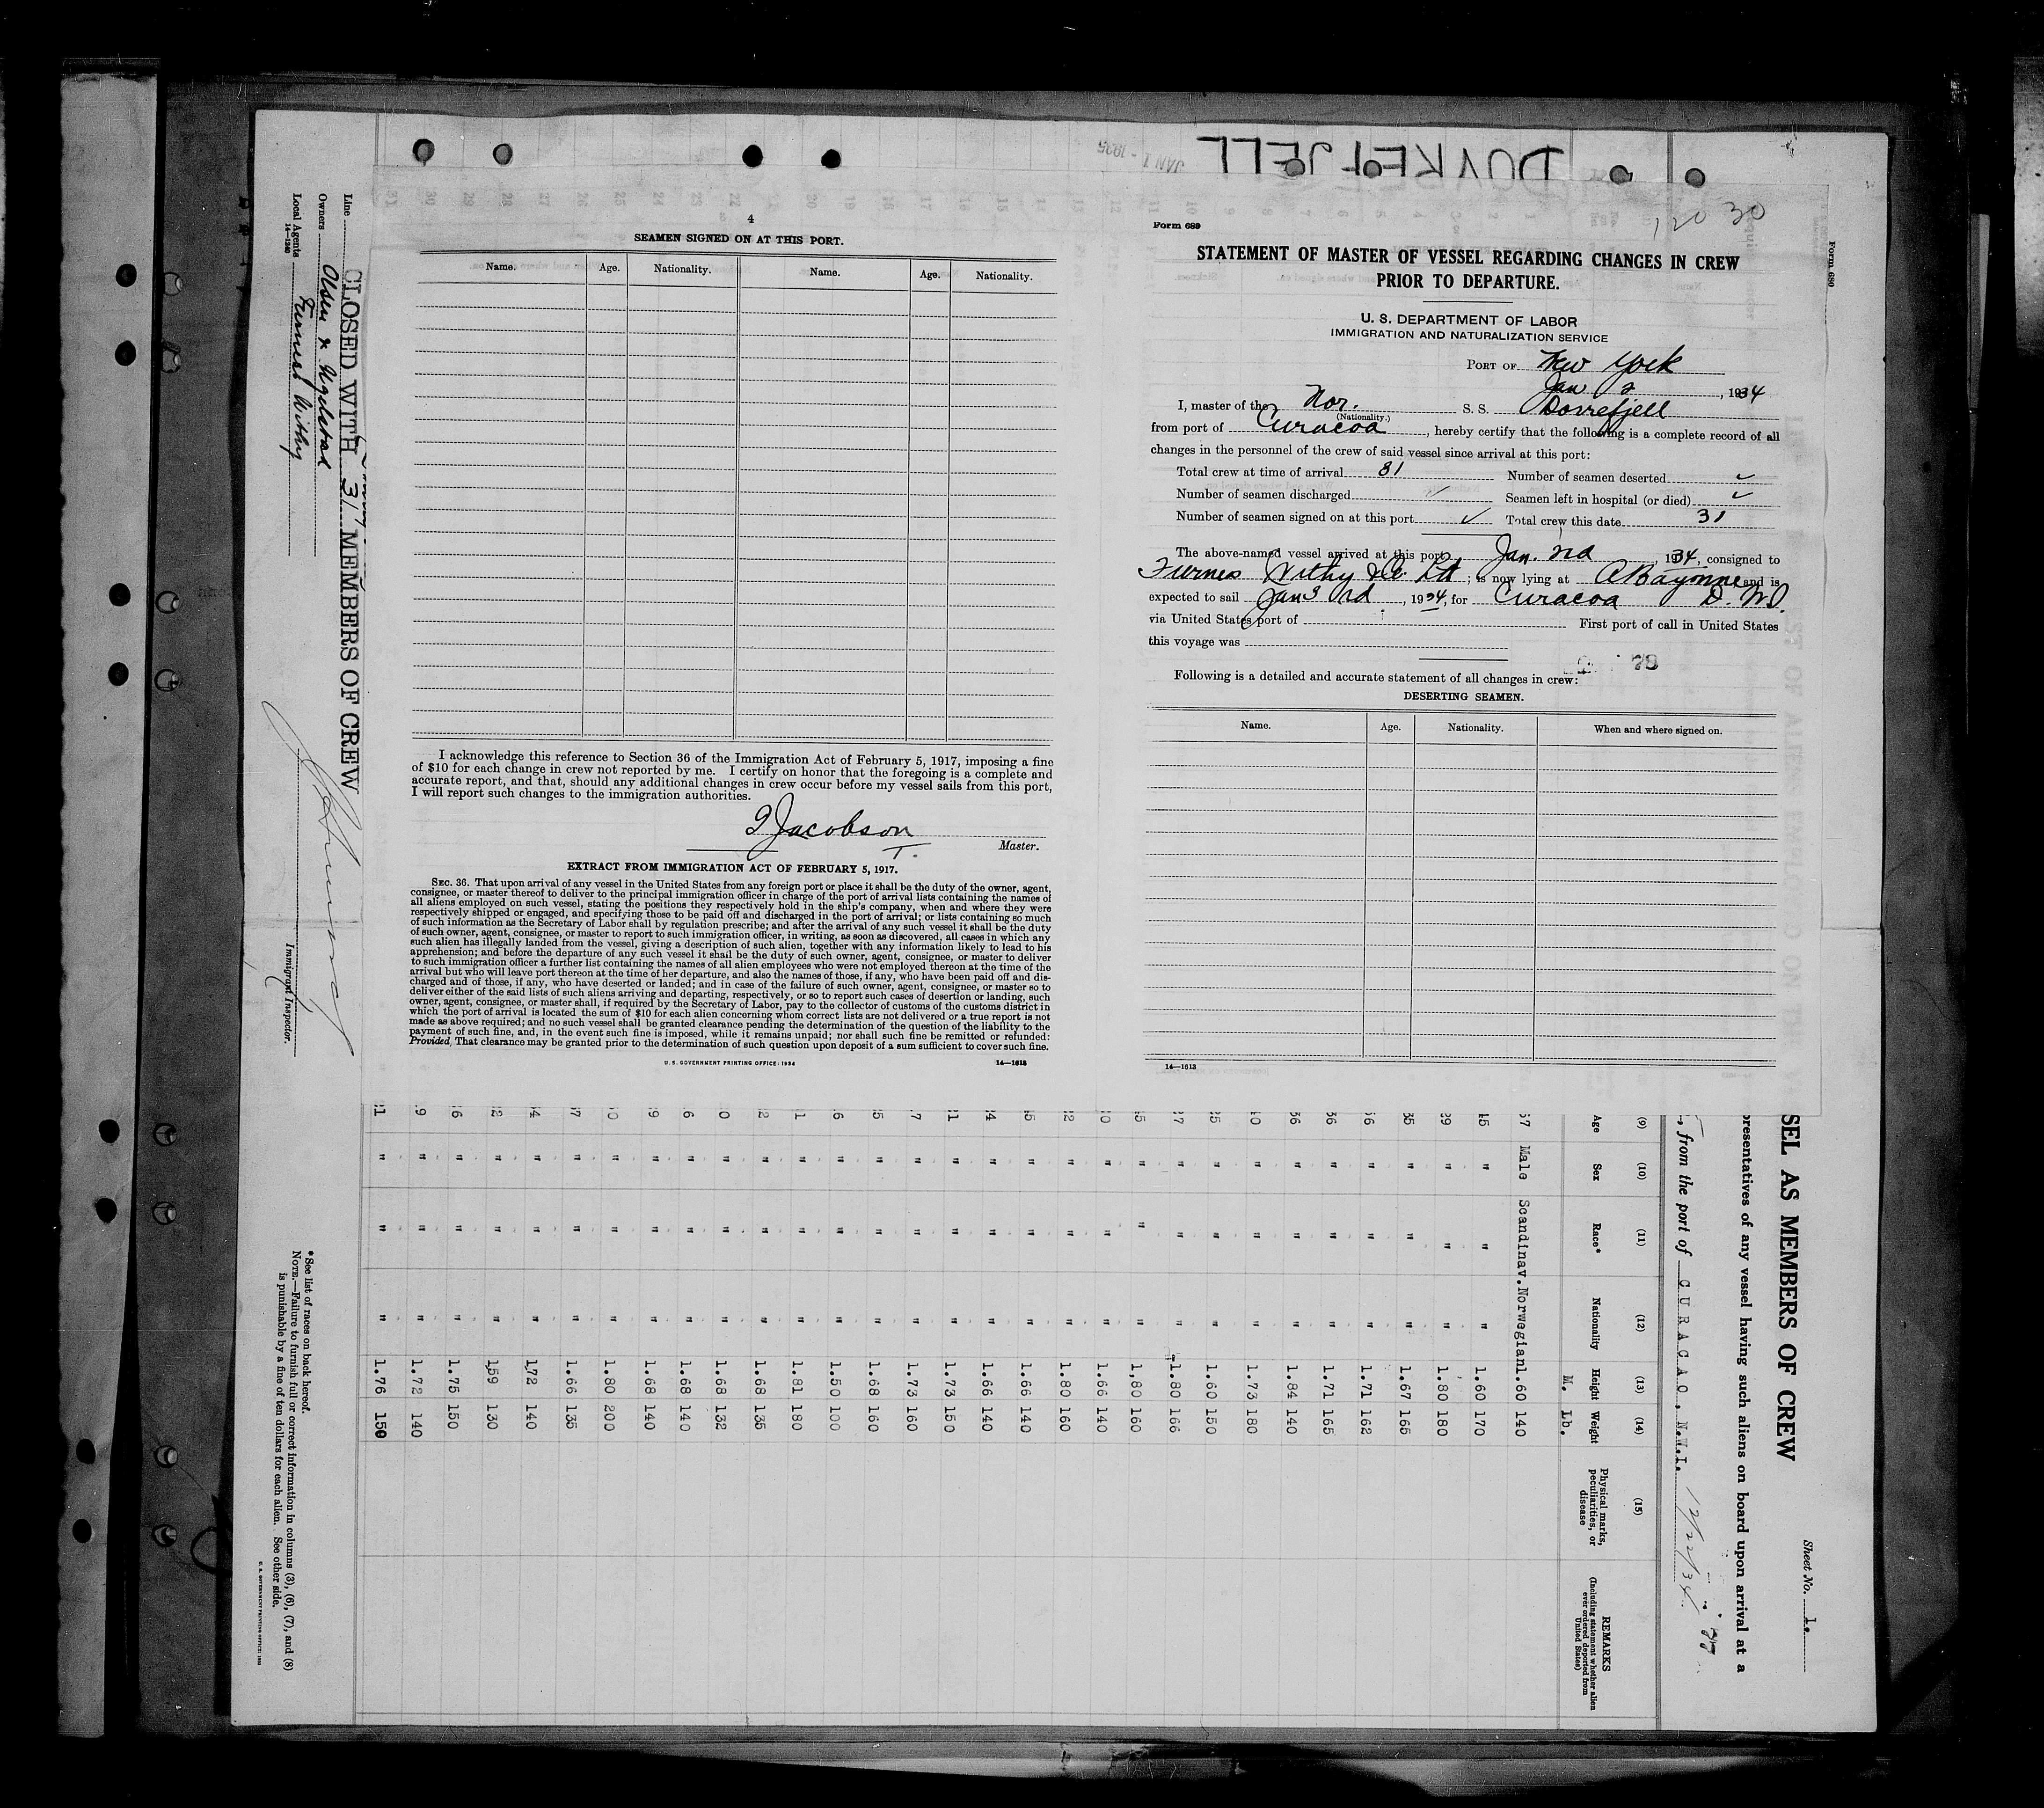 DOVREFJELL
JAN 1 - 1935
120 30
4
SEAMEN SIGNED ON AT THIS PORT.
Name. Age. Nationality. Name. Age. Nationality.
I acknowledge this reference to Section 36 of the Immigration Act of February 5, 1917, imposing a fine
of $10 for each change in crew not reported by me. I certify on honor that the foregoing is a complete and
accurate report, and that, should any additional changes in crew occur before my vessel sails from this port,
I will report such changes to the immigration authorities.
Jacobson
Master.
EXTRACT FROM IMMIGRATION ACT OF FEBRUARY 5, 1917.
SEC. 36. That upon arrival of any vessel in the United States from any foreign port or place it shall be the duty of the owner, agent,
consignee, or master thereof to deliver to the principal immigration officer in charge of the port of arrival lists containing the names of
all aliens employed on such vessel, stating the positions they respectively hold in the ship's company, when and where they were
respectively shipped or engaged, and specifying those to be paid off and discharged in the port of arrival; or lists containing so much
of such information as the Secretary of Labor shall by regulation prescribe; and after the arrival of any such vessel it shall be the duty
of such owner, agent, consignee, or master to report to such immigration officer, in writing, as soon as discovered, all cases in which any
such alien has illegally landed from the vessel, giving a description of such alien, together with any information likely to lead to his
apprehension; and before the departure of any such vessel it shall be the duty of such owner, agent, consignee, or master to deliver
to such immigration officer a further list containing the names of all alien employees who were not employed thereon at the time of the
arrival but who will leave port thereon at the time of her departure, and also the names of those, if any, who have been paid off and dis-
charged and of those, if any, who have deserted or landed; and in case of the failure of such owner, agent, consignee, or master so to
deliver either of the said lists of such aliens arriving and departing, respectively, or so to report such cases of desertion or landing, such
owner, agent, consignee, or master shall, if required by the Secretary of Labor, pay to the collector of customs of the customs district in
which the port of arrival is located the sum of $10 for each alien concerning whom correct lists are not delivered or a true report is not
made as above required; and no such vessel shall be granted clearance pending the determination of the question of the liability to the
payment of such fine, and, in the event such fine is imposed, while it remains unpaid; nor shall such fine be remitted or refunded:
Provided, That clearance may be granted prior to the determination of such question upon deposit of a sum sufficient to cover such fine.
U. S. GOVERNMENT PRINTING OFFICE: 1934 14—1613
Form 689
STATEMENT OF MASTER OF VESSEL REGARDING CHANGES IN CREW
PRIOR TO DEPARTURE.
U. S. DEPARTMENT OF LABOR
IMMIGRATION AND NATURALIZATION SERVICE
PORT OF New York
Jan 2, 1934
I, master of the Nor. S. S. Dovrefjell
(Nationality.)
from port of Curacoa, hereby certify that the following is a complete record of all
changes in the personnel of the crew of said vessel since arrival at this port:
Total crew at time of arrival 31 Number of seamen deserted ✓
Number of seamen discharged ✓ Seamen left in hospital (or died) ✓
Number of seamen signed on at this port ✓ Total crew this date 31
The above-named vessel arrived at this port Jan. 2nd, 1934, consigned to
Furness Withy & Co. Ltd; is now lying at Bayonne and is
expected to sail Jan 3rd, 1934, for Curacoa D. W. I.
via United States port of First port of call in United States
this voyage was
78
Following is a detailed and accurate statement of all changes in crew:
DESERTING SEAMEN.
Name. Age. Nationality. When and where signed on.
14—1613
Form 680
Line
Owners Olsen & Ugelstad
Local Agents Furness Withy
14—1240
CLOSED WITH 31 MEMBERS OF CREW
Immigrant Inspector.
* See list of races on back hereof.
NOTE.—Failure to furnish full or correct information in columns (3), (6), (7), and (8)
is punishable by a fine of ten dollars for each alien. See other side.
SEL AS MEMBERS OF CREW
Sheet No. 1.
presentatives of any vessel having such aliens on board upon arrival at a
, from the port of CURACAO, N.W.I. 12/22/34
(9) (10) (11) (12) (13) (14) (15)
Age Sex Race* Nationality Height Weight Physical marks, peculiarities, or disease REMARKS
(Including statement whether alien ever ordered deported from United States)
M. Lb.
57 Male Scandinav. Norwegian 1.60 140
45 " " " 1.60 170
39 " " " 1.80 180
35 " " " 1.67 165
36 " " " 1.71 162
36 " " " 1.71 165
36 " " " 1.84 140
0 " " " 1.73 180
25 " " " 1.60 150
27 " " " 1.80 166
5 " " " 1,80 160
0 " " " 1.66 140
2 " " " 1.80 160
5 " " " 1.66 140
4 " " " 1.66 140
1 " " " 1.73 150
7 " " " 1.73 160
5 " " " 1.68 160
6 " " " 1.50 100
1 " " " 1.81 180
2 " " " 1.68 135
0 " " " 1.68 132
6 " " " 1.68 140
9 " " " 1.68 140
0 " " " 1.80 200
7 " " " 1.66 135
4 " " " 172 140
2 " " " 159 130
6 " " " 1.75 150
9 " " " 1.72 140
1 " " " 1.76 150